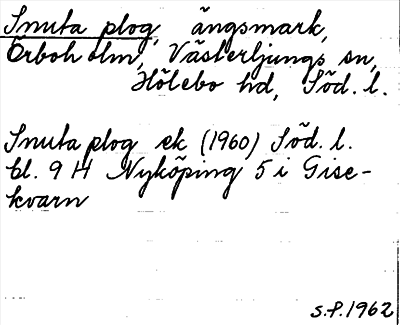 Snuta plog, ängsmark,
Örboholm, Västerljungs sn,
Hölebo hd, Söd. l.
Snuta plog ek (1960) Söd. l.
bl. 9 H Nyköping 5 i Gise-
kvarn
S.P. 1962